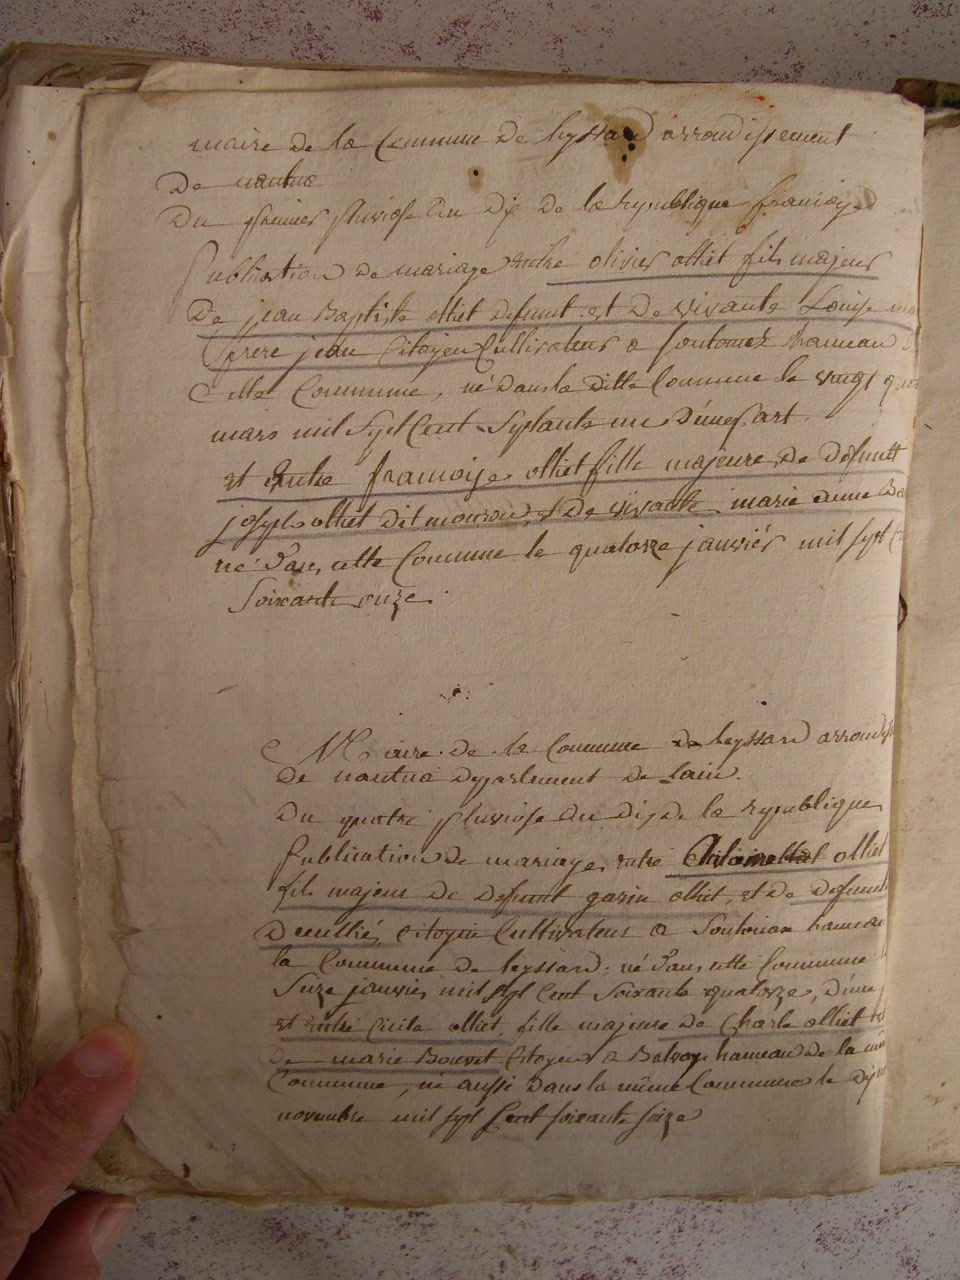 maire de la Commune de leyssard arrondissement
De nantua
Du premier pluviose an dix de la republique francoise
Publication de mariage entre olivier olliet fils majeur
De jean Baptiste olliet defunt et De vivante Louise
jean Citoyen Cultivateur a Soutonax hameau
Cette Commune, né dans la ditte Commune le vingt
mars mil Sept Cent Septante un d'une part
et Entre francoise olliet fille majeure De Defunt
joseph olliet dit mouron, & De vivante marie anne
né dans cette Commune le quatorze janvier mil sept
Soixante onze
Maire de la Commune de leyssard
De nantua departement de lain
Du quatre pluviose an dix de la republique
Publication de mariage entre olliet
fils majeur de defunt garin olliet, et De defunt
Citoyen Cultivateur a Soutonax hameau
la Commune de leyssard, né dans cette Commune
Seize janvier mil sept Cent Soixante quatorze, d'une
et entre Cicile olliet, fille majeure de Charle olliet et
De marie Bouvet Citoyen a Balvay hameau de la
Commune, né aussi dans la même Commune le
novembre mil sept Cent soixante seize